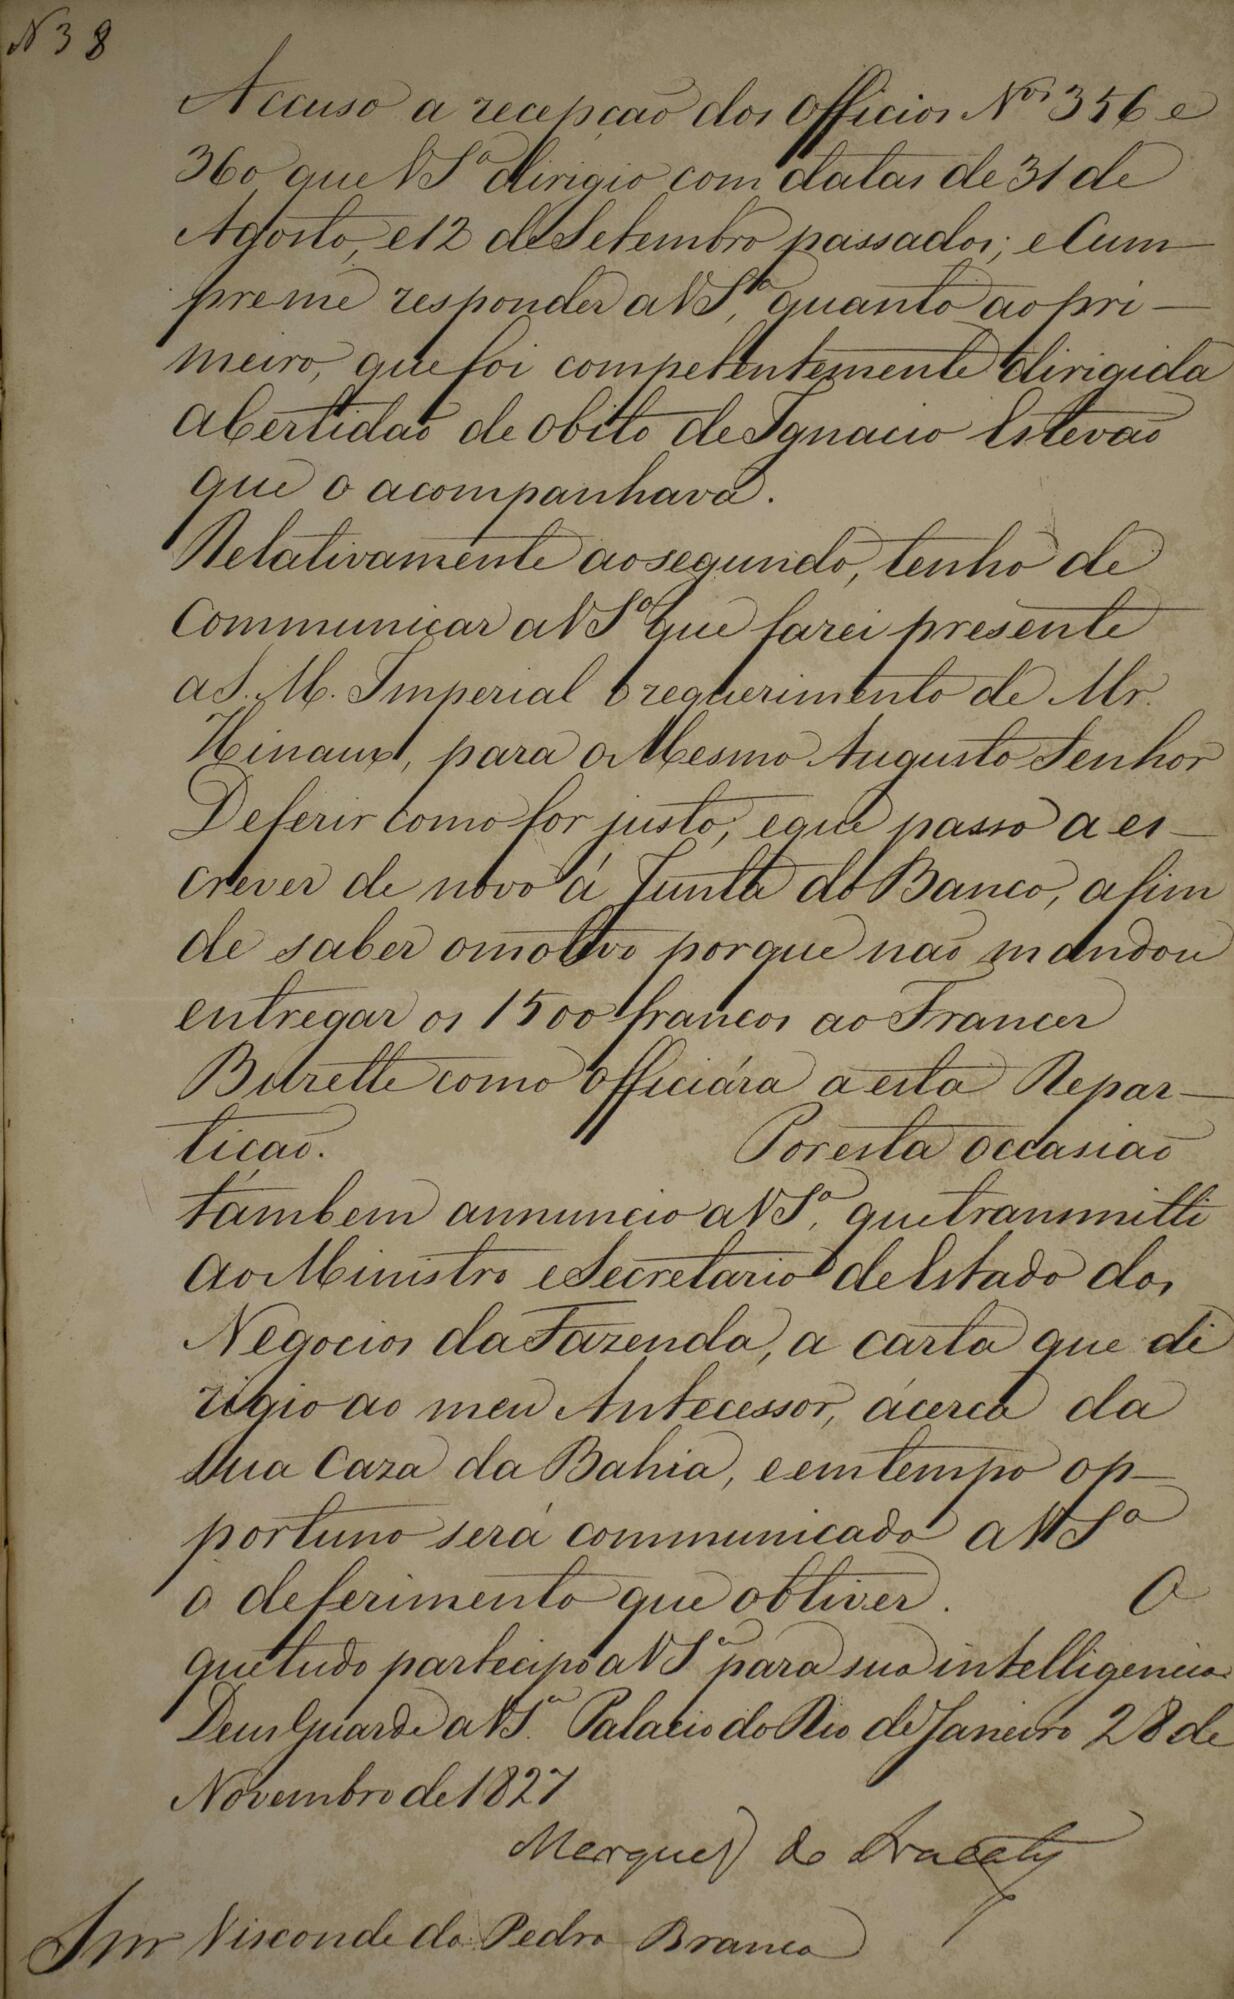 N 38
Accuso a recepção dos Officios Nos 356 e
360 que VSa dirigio com datas de 31 de
Agosto, e 12 de Setembro passados; e Cum-
preme responder a VSa, quanto ao pri-
meiro, que foi competentemente dirigida
a Certidão de Obito de Ignacio Estevão
que o acompanhava.
Relativamente ao segundo, tenho de
Communicar a VSa que farei presente
a S. M. Imperial o requerimento de Mr.
Hinaux, para o Mesmo Augusto Senhor
Deferir como for justo; e que passo a es-
crever de novo á Junta do Banco, a fim
de saber o motivo porque não mandou
entregar os 1500 francos ao Francez
Burette como officiára a esta Repar-
tição. Por esta occasião
tambem annuncio a VSa, que transmitti
ao Ministro e Secretario de Estado dos
Negocios da Fazenda, a carta que di
rigio ao meu Antecessor, ácerca da
sua Caza da Bahia, e em tempo op-
portuno será communicado a VSa
o deferimento que obtiver. O
que tudo participo a VSa para sua intelligencia.
Deus Guarde a VSa. Palacio do Rio de Janeiro 28 de
Novembro de 1827
Marquez de Aracaty
Snr Visconde da Pedra Branca